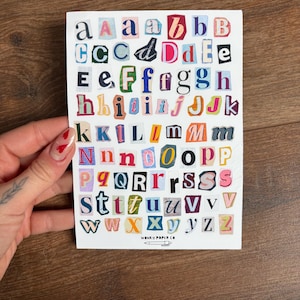 a A a a b b B
C c C d D d E e
E e F f f g g h
h b i i i j J J k
K K l L l m M m
N n n N O O p p
p q Q R r r s s S
S t t t u u v v v
w w x x y y z z